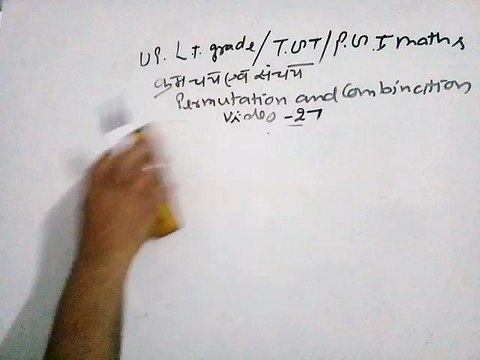 UP. L.T. grade / T.G.T / P.G.T maths
क्रमचय एवं संचय
Permutation and Combination
Video - 27